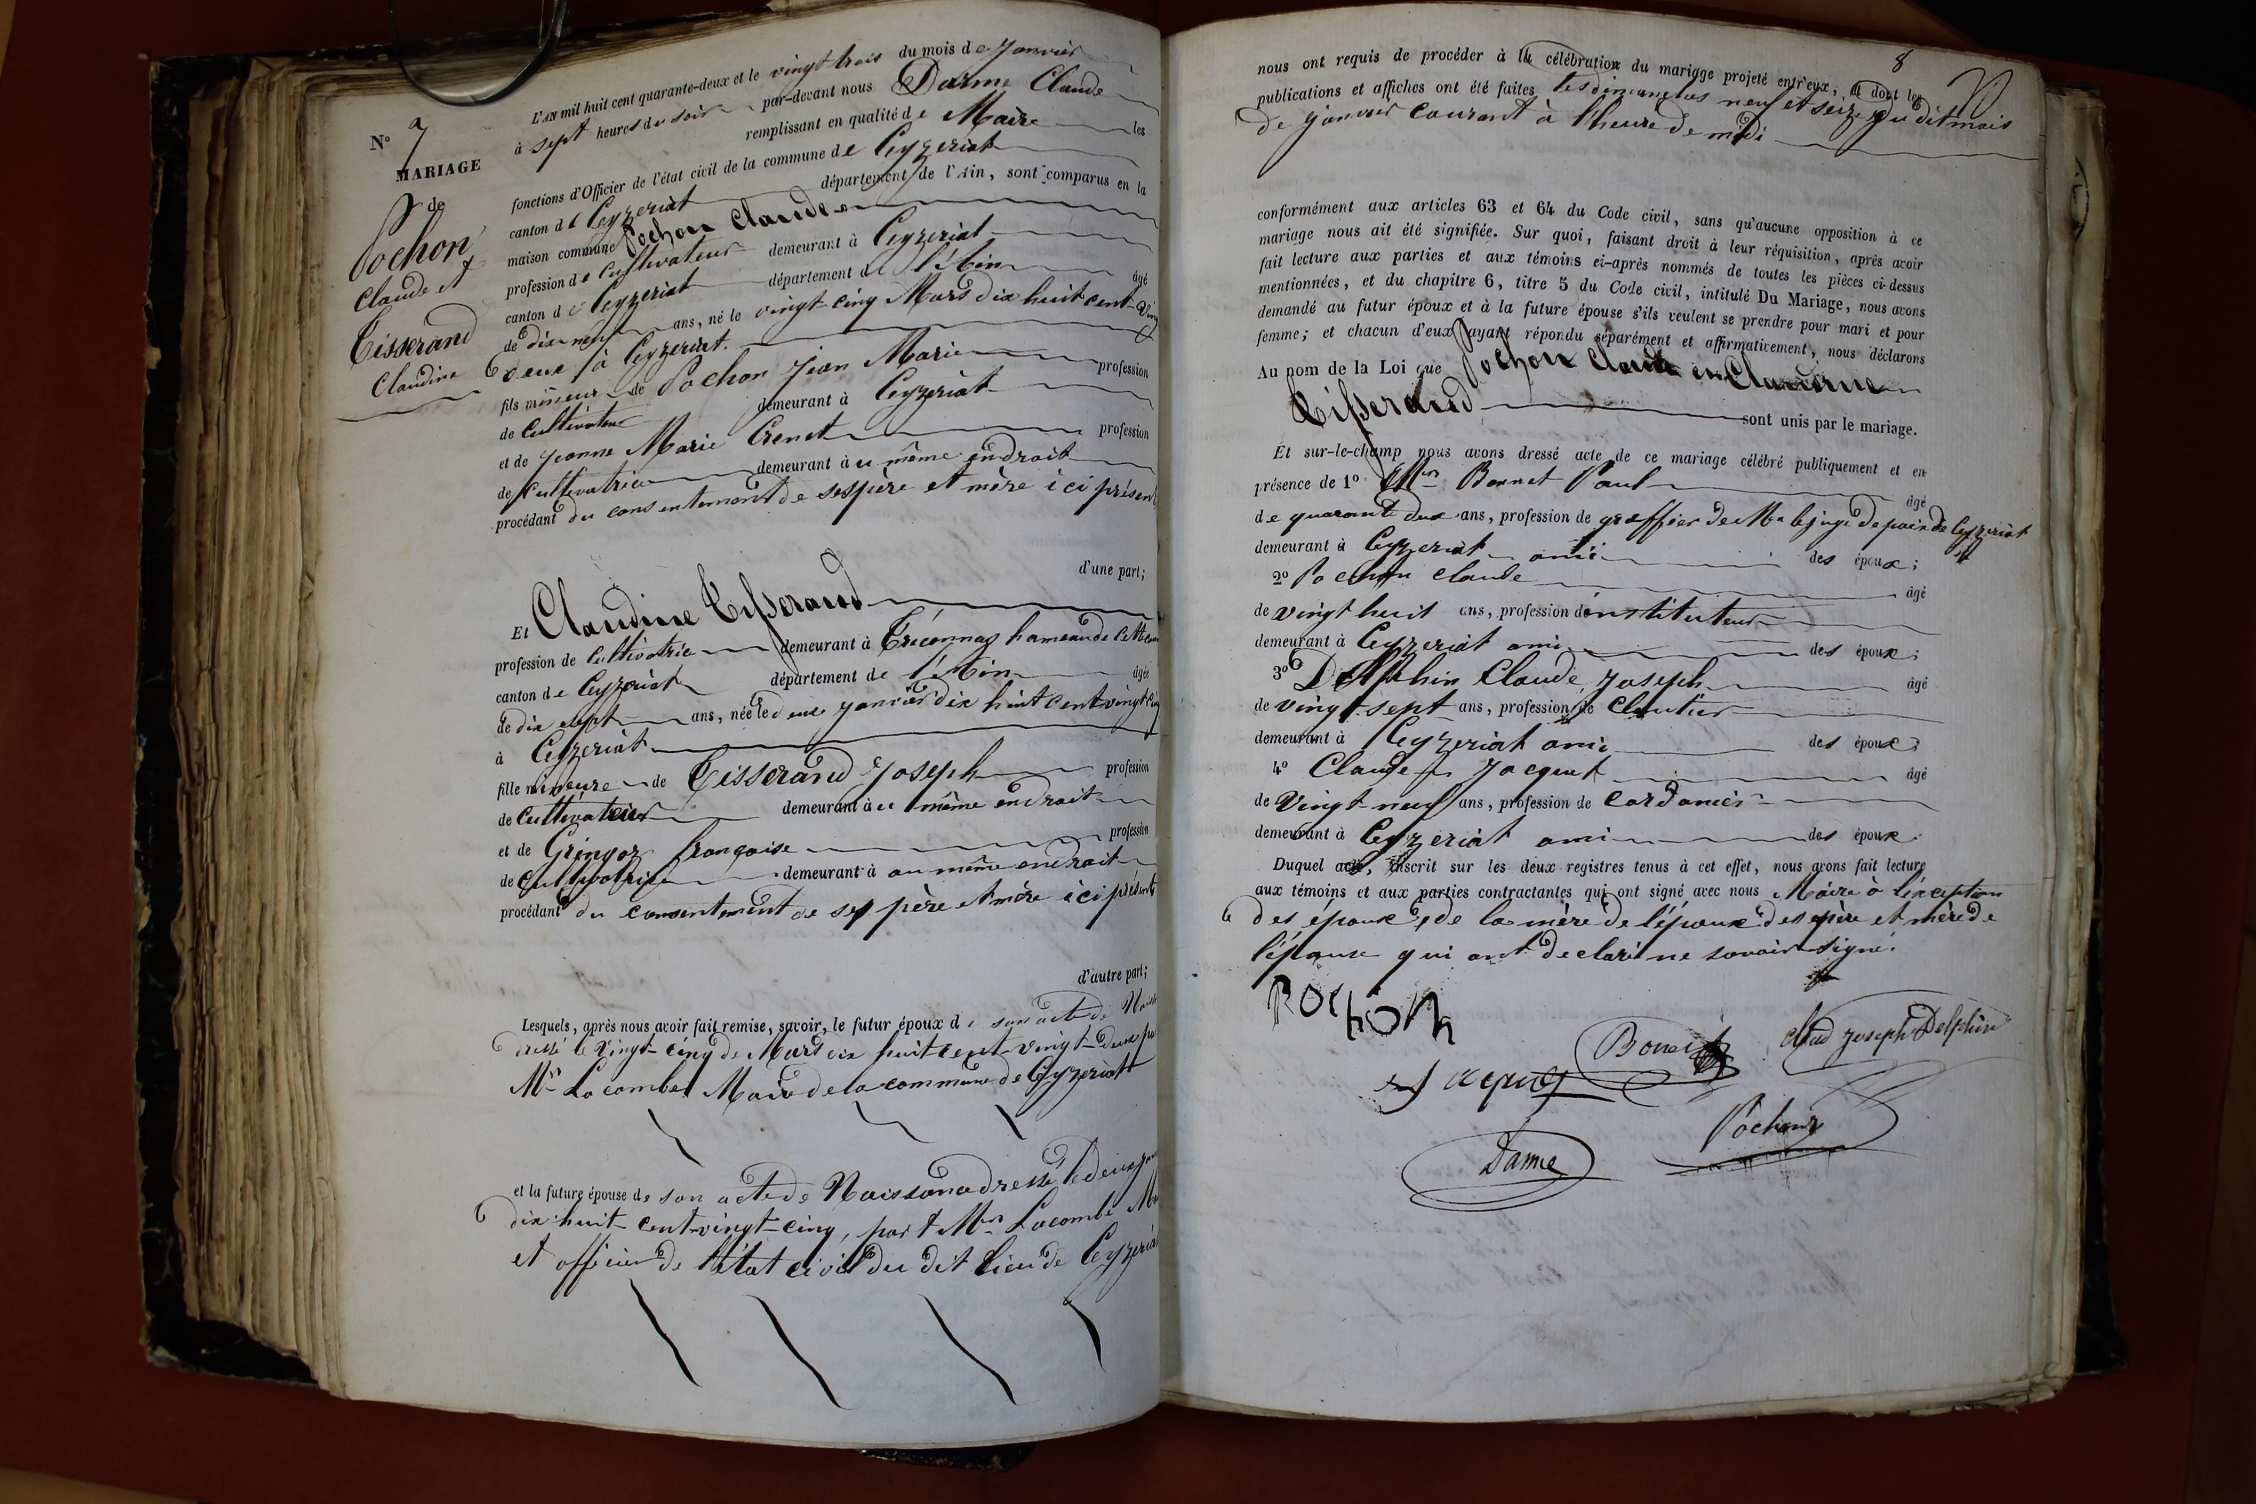 N° 7
MARIAGE
de
Pochon
Claude et
Tisserand
Claudine
L'AN mil huit cent quarante-deux et le vingt trois du mois de janvier
à sept heures du soir par-devant nous Darme Claude
remplissant en qualité de Maire les
fonctions d'Officier de l'état civil de la commune de Ceyzeriat
canton de Ceyzeriat département de l'Ain, sont comparus en la
maison commune Pochon Claude
profession de Cultivateur demeurant à Ceyzeriat
canton de Ceyzeriat département de l'Ain âgé
de dix neuf ans, né le vingt-cinq Mars dix huit cent-vingt
deux à Ceyzeriat.
fils mineur de Pochon Jean Marie profession
de Cultivateur demeurant à Ceyzeriat
et de Jeanne Marie Crenet profession
de Cultivatrice demeurant à u même endroit
procédant du consentement de ses père et mère ici présent
d'une part;
Et Claudine Tisserand
profession de Cultivatrice demeurant à Tréconnas hameau de Cette
canton de Ceyzeriat département de l'Ain âgée
de dix sept ans, née le deux janvier dix huit cent vingt cinq
à Ceyzeriat
fille mineure de Tisserand Joseph profession
de Cultivateur demeurant à u même endroit
et de Gringoz françoise profession
de Cultivatrice demeurant à au même endroit
procédant du consentement de ses père et mère ici présent
d'autre part;
Lesquels, après nous avoir fait remise, savoir, le futur époux de son acte de
dressé le vingt-cinq de Mars dix huit cent-vingt-deux
Mr Lacombe Maire de la commune de Ceyzeriat
et la future épouse de son acte de Naissance dressé le deux
dix-huit-cent-vingt-cinq, par Mr Lacombe
et officier de l'état civil du dit lieu de Ceyzeriat
8
nous ont requis de procéder à la célébration du mariage projeté entr'eux, et dont les
publications et affiches ont été faites les dimanches neuf et seize du dit mois
de janvier courant à l'heure de midi
conformément aux articles 63 et 64 du Code civil, sans qu'aucune opposition à ce
mariage nous ait été signifiée. Sur quoi, faisant droit à leur réquisition, après avoir
fait lecture aux parties et aux témoins ci-après nommés de toutes les pièces ci-dessus
mentionnées, et du chapitre 6, titre 5 du Code civil, intitulé Du Mariage, nous avons
demandé au futur époux et à la future épouse s'ils veulent se prendre pour mari et pour
femme; et chacun d'eux ayant répondu séparément et affirmativement, nous déclarons
Au nom de la Loi que Pochon Claude et Claudine
Tisserand sont unis par le mariage.
Et sur-le-champ nous avons dressé acte de ce mariage célébré publiquement et en
présence de 1° Mr Bonnet Paul âgé
de quarante deux ans, profession de greffier de Mr le juge de paix de Ceyzeriat
demeurant à Ceyzeriat ami des époux;
2° Pochon Claude âgé
de vingt huit ans, profession d'instituteur
demeurant à Ceyzeriat ami des époux;
3° Delphin Claude Joseph âgé
de vingt-sept ans, profession de Cloutier
demeurant à Ceyzeriat ami des époux;
4° Claude Jacquet âgé
de Vingt-neuf ans, profession de Cordonier
demeurant à Ceyzeriat ami des époux
Duquel acte, inscrit sur les deux registres tenus à cet effet, nous avons fait lecture
aux témoins et aux parties contractantes qui ont signé avec nous Maire à l'exception
des époux, de la mère de l'époux des père et mère de
l'épouse qui ont declaré ne savoir signé.
POCHON
Bonnet
Claud Joseph Delphin
Jacquet
Pochon
Darme